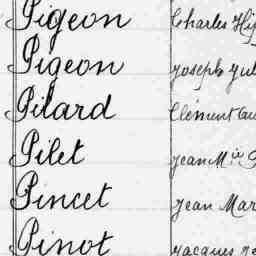 Pigeon Charles
Pigeon Joseph
Pilard Clément
Pilet Jean M.ie
Pincet Jean Mar
Pinot Jacques